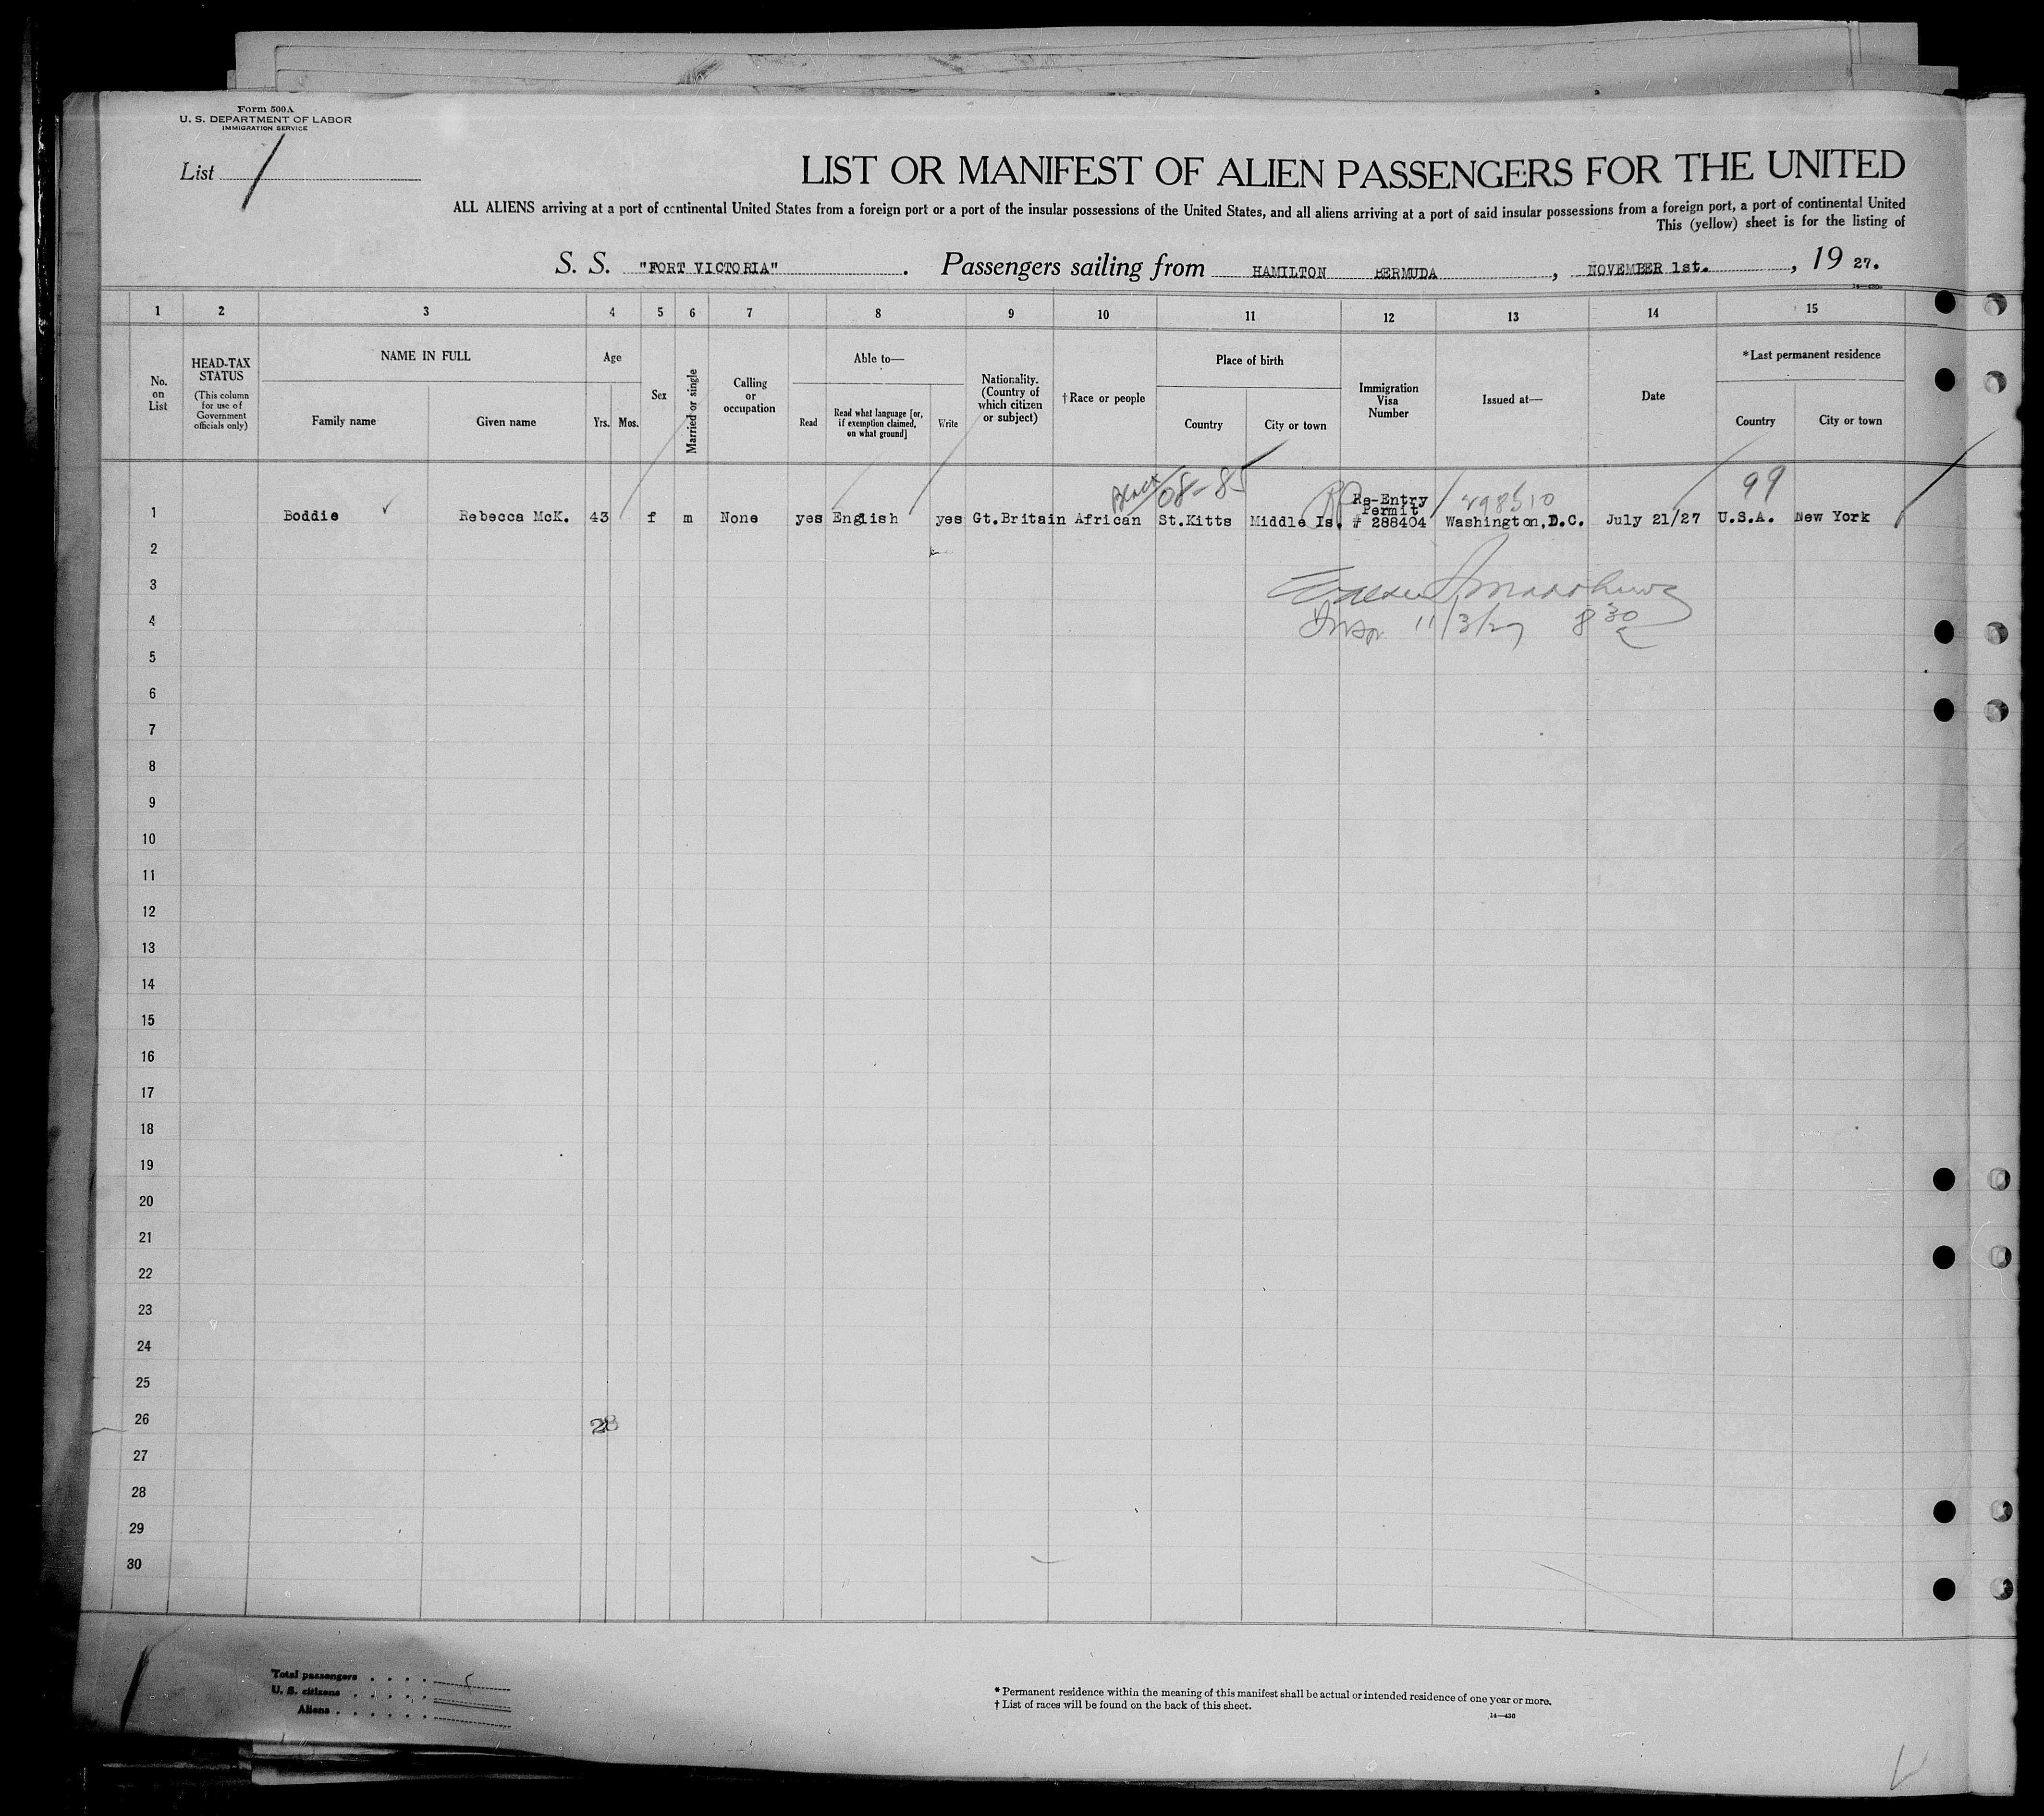 Form 500A
U. S. DEPARTMENT OF LABOR
IMMIGRATION SERVICE
List 1
LIST OR MANIFEST OF ALIEN PASSENGERS FOR THE UNITED
ALL ALIENS arriving at a port of continental United States from a foreign port or a port of the insular possessions of the United States, and all aliens arriving at a port of said insular possessions from a foreign port, a port of continental United
This (yellow) sheet is for the listing of
S. S. "FORT VICTORIA". Passengers sailing from HAMILTON BERMUDA, NOVEMBER 1st., 19 27.
14—430
1 2 3 4 5 6 7 8 9 10 11 12 13 14 15
No. on List
HEAD-TAX STATUS
(This column for use of Government officials only)
NAME IN FULL
Family name Given name
Age
Yrs. Mos.
Sex
Married or single
Calling or occupation
Able to—
Read
Read what language [or, if exemption claimed, on what ground]
Write
Nationality. (Country of which citizen or subject)
†Race or people
Place of birth
Country City or town
Immigration Visa Number
Issued at—
Date
*Last permanent residence
Country City or town
Black 08-85 99
RP Re-Entry 498510
Permit
1 Boddie Rebecca McK. 43 f m None yes English yes Gt.Britain African St.Kitts Middle Is. # 288404 Washington,D.C. July 21/27 U.S.A. New York
2
3
4
11/3/27 8 30
5
6
7
8
9
10
11
12
13
14
15
16
17
18
19
20
21
22
23
24
25
26
27
28
29
30
Total passengers
U. S. citizens
Aliens
* Permanent residence within the meaning of this manifest shall be actual or intended residence of one year or more.
† List of races will be found on the back of this sheet.
14—430